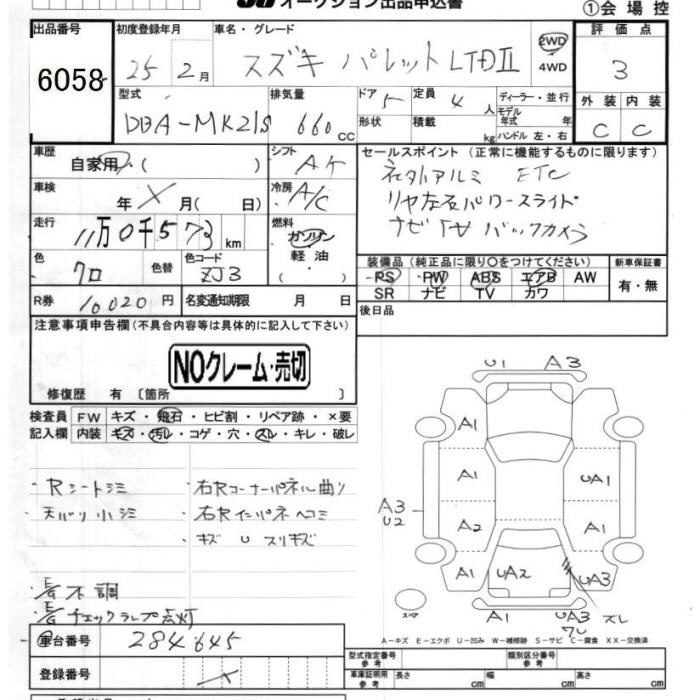 オークション出品申込書
①会場控
出品番号
6058
初度登録年月
25 2月
車名・グレード
スズキ パレット LTDⅡ
2WD
4WD
評価点
3
型式
DBA-MK21S
排気量
660 cc
ドア
5
形状
定員
4 人
積載
kg
ディーラー・並行
モデル
年式 年
ハンドル 左・右
外装 内装
C C
車歴
自家用 ( )
シフト
AT
車検
年 X 月( 日)
冷房
A/C
走行
11万0千573 km
燃料
ガソリン
軽油・
( )
色
クロ
色替
色コード
ZJ3
R券
10020円
名変通知期限 月 日
セールスポイント (正常に機能するものに限ります)
社外アルミ ETC
リヤ左右パワースライド
ナビ TV バックカメラ
装備品 (純正品に限り○をつけてください)
PS PW ABS エアB AW
SR ナビ TV カワ
新車保証書
有・無
後日品
注意事項申告欄 (不具合内容等は具体的に記入して下さい)
NOクレーム・売切
修復歴 有 〔箇所 〕
検査員
記入欄
FW キズ・飛石・ヒビ割・リペア跡・×要
内装 キズ・汚レ・コゲ・穴・スレ・キレ・破レ
・Rシートシミ
・天バリ小シミ
・右Rコーナーパネル曲り
・右Rインパネヘコミ
・キズ U スリキズ
・不調
・チェックランプ点灯
U1 A3
A1
A1
UA1
A3
U2
A2
A1
A1
UA2
UA3
スペア
UA3 ズレ
A-キズ E-エクボ U-凹み W-補修跡 S-サビ C-腐食 XX-交換済
車台番号
284645
登録番号
X
型式指定番号
参考
類別区分番号
参考
車庫証明用
参考
長さ cm 幅 cm 高さ cm